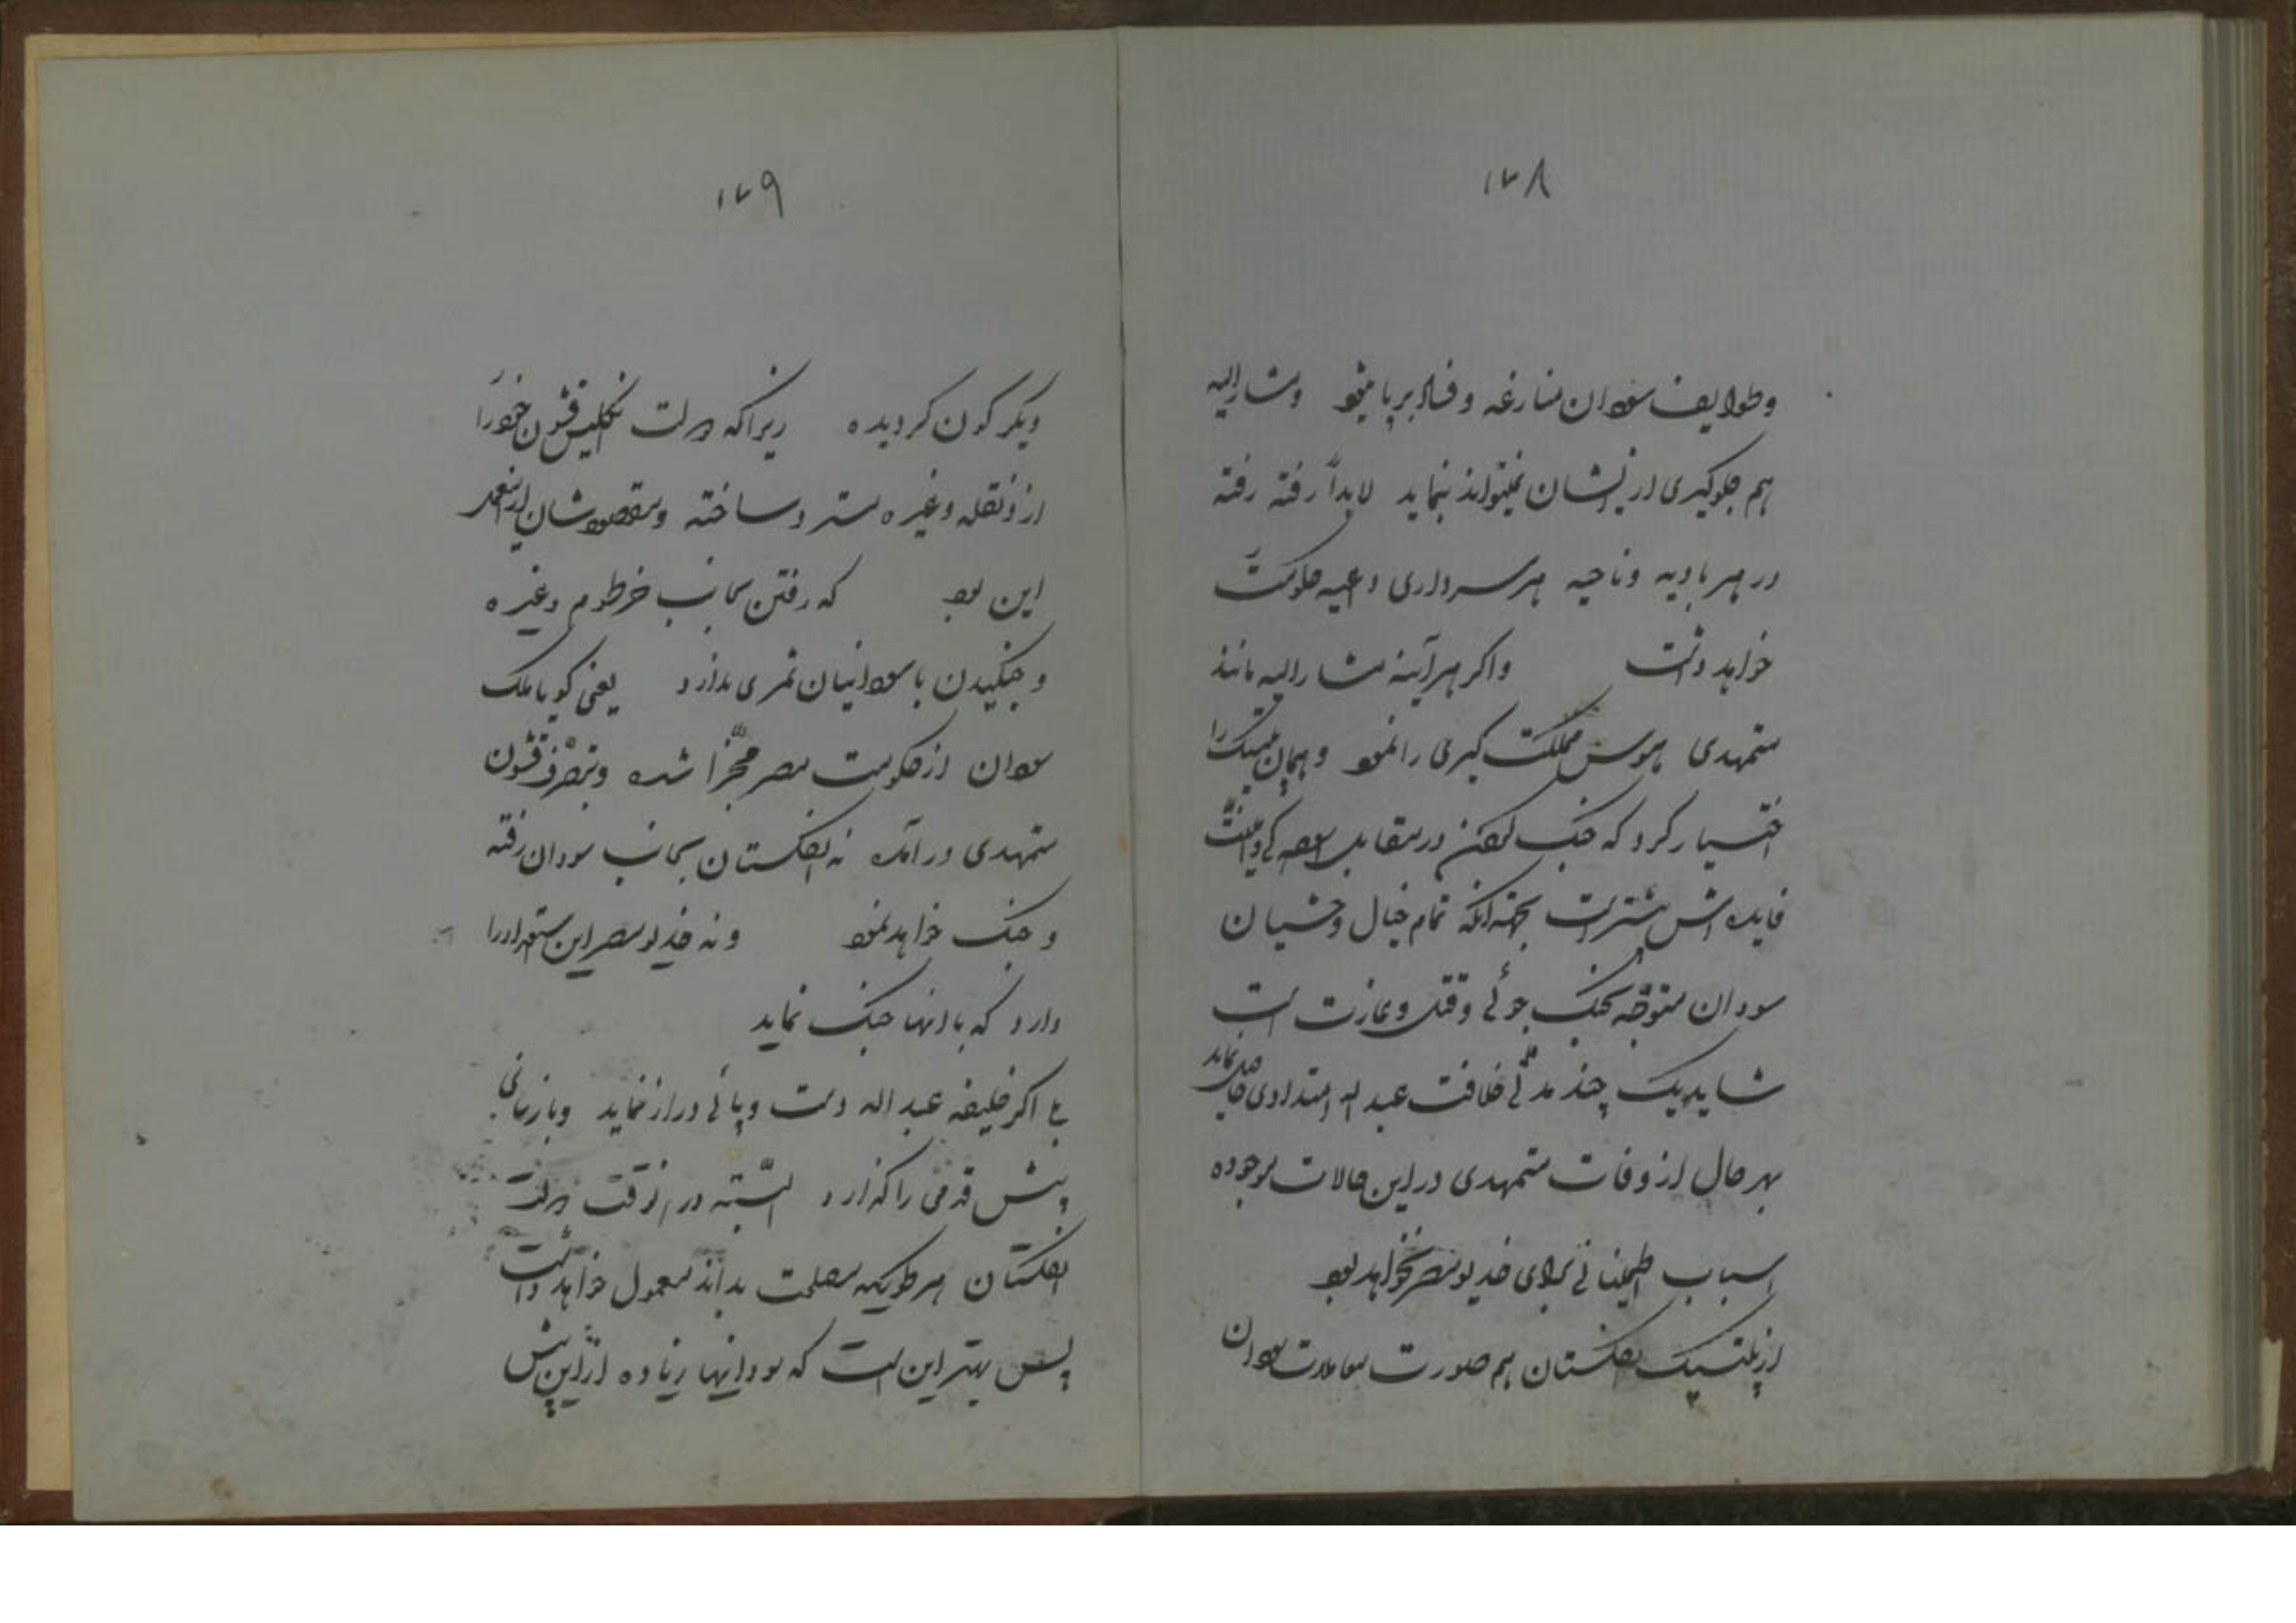 ۱۷۸
و طوایف سودان منازعه و فساد برپا میشود و مشارالیه
هم جلوگیری از ایشان نمیتواند بنماید لابداً رفته رفته
در هر بادیه و ناحیه هر سرداری داعیه حکومت
خواهد داشت و اگر هر آینه مشارالیه مانند
متمهدی هوس مملکت گیری را نمود و همان مسلک را
اختیار کرد که جنگ کردن در مقابل
فایده اش بیشتر است بجهة آنکه تمام خیال وحشیان
سودان متوجه جنگ جوئی و قتل و غارت است
شاید یک چند مدتی خلافت عبد اله امتدادی حاصل نماید
بهر حال از وفات متمهدی در این حالات موجوده
اسباب اطمینانی برای خدیو مصر نخواهد بود
از پلتیک انگلستان هم صورت معاملات سودان
۱۷۹
دیگر گون گردیده زیرا که دولت انگلیس قشون خود را
از دنقله و غیره مسترد ساخته و مقصودشان از اینعمل
این بود که رفتن بجانب خرطوم و غیره
و جنگیدن با سودانیان ثمری ندارد یعنی گویا ملک
سودان از حکومت مصر مجزّا شده و بتصرف قشون
متمهدی در آمده نه انگلستان بجانب سودان رفته
و جنگ خواهد نمود و نه خدیو مصر این استعداد را
دارد که با انها جنگ نماید
بلی اگر خلیفه عبد اله دست و پائی دراز نماید و باز بنای
پیش قدمی را گذارد البتّه در انوقت دولت
انگلستان هر طوریکه مصلحت بداند معمول خواهد داشت
پس بهتر این است که سودانیها زیاده از این پیش